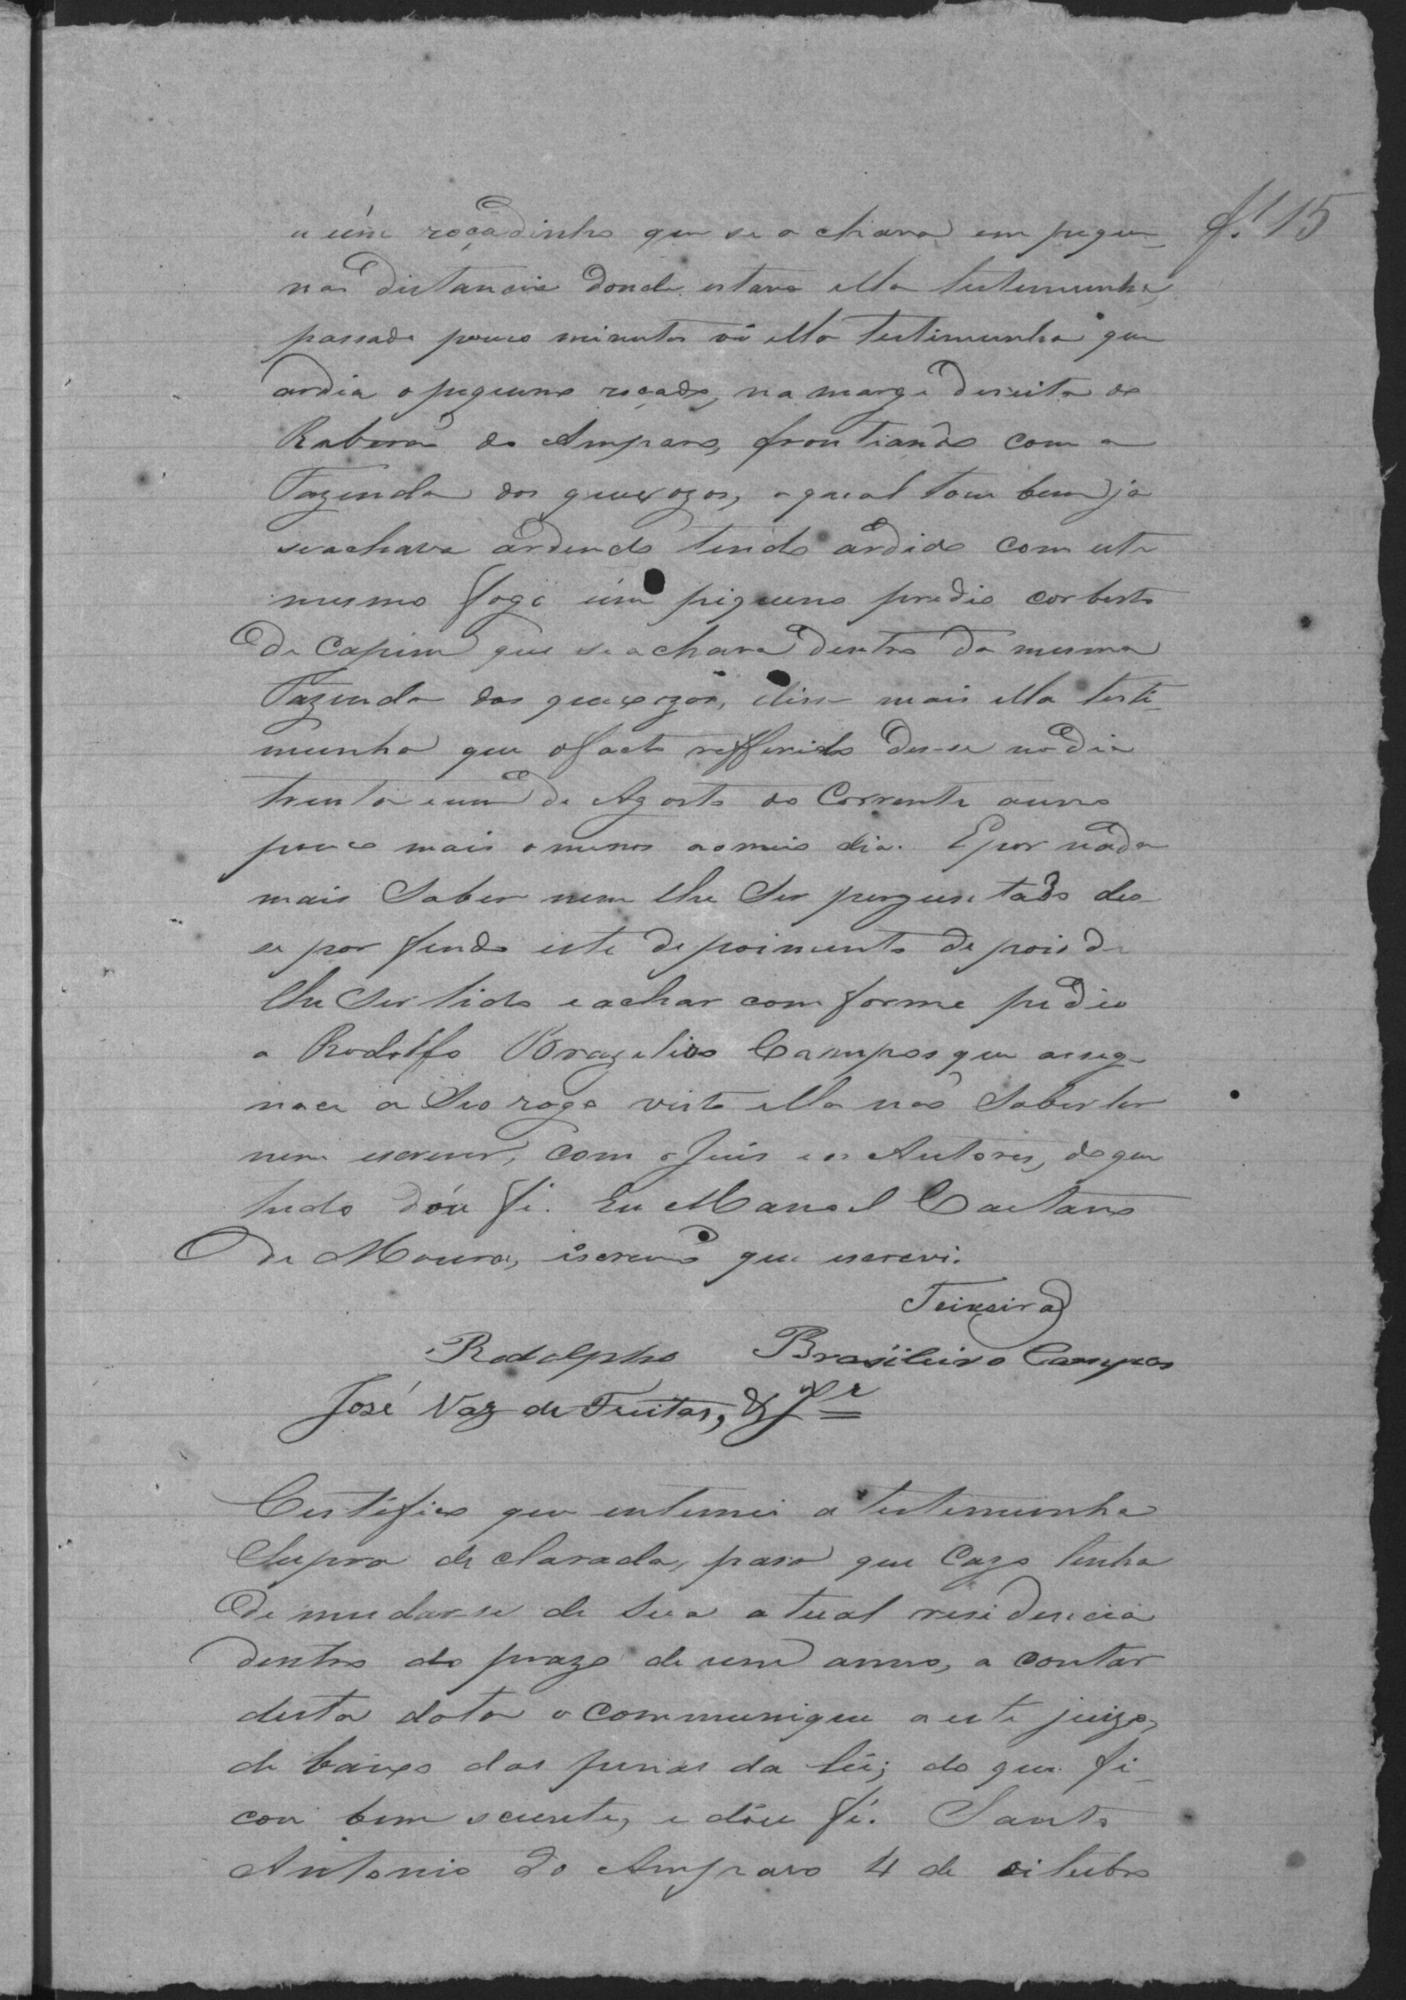 fl 15
a úm roçadinho que se a chava em peque-
na distancia donde estava ella testemunha,
passado pouco minutos vio ella testimunha que
ardia o pequeno roçado, na marge direita do
Raberão do Amparo, frontiando com a
Fazenda dos queixozos, a qual tam bem ja
se achava ardendo tendo ardido com este
mesmo fogo úm piqueno predio corberto
de Capim que se achava dentro da mesma
Fazenda dos queixozos, disse mais ella testi-
munha que o facto refferido deu-se no dia
trenta e um de Agosto do Corrente anno
pouco mais o menos ao meio dia. E por nada
mais Saber nem lhe Ser perguntado deo
se por findo este depoimento depois de
lhe Ser lido e achar comforme pedio
a Rodolfo Brazelio Campos que asseg-
nace a Seo rogo visto ella não Saber ler
nem escrever, com o Juis e os Autores, do que
tudo dou fé. Eu Manoel Caetano
de Moura, iscrivão que escrevi.
Teixeira
Rodolpho Brasileiro Campos
José Vaz de Freitas,
Certifico que entemei a testemunha
Supra declarada, para que Cazo tenha
de mudar-se de sua atual residencia
dentro do prazo de um anno, a contar
desta data o communique a este juizo,
de baixo das penas da lei; do que fi-
cou bem sciente, e dou fé. Santo
Antonio do Amparo 4 de oitubro